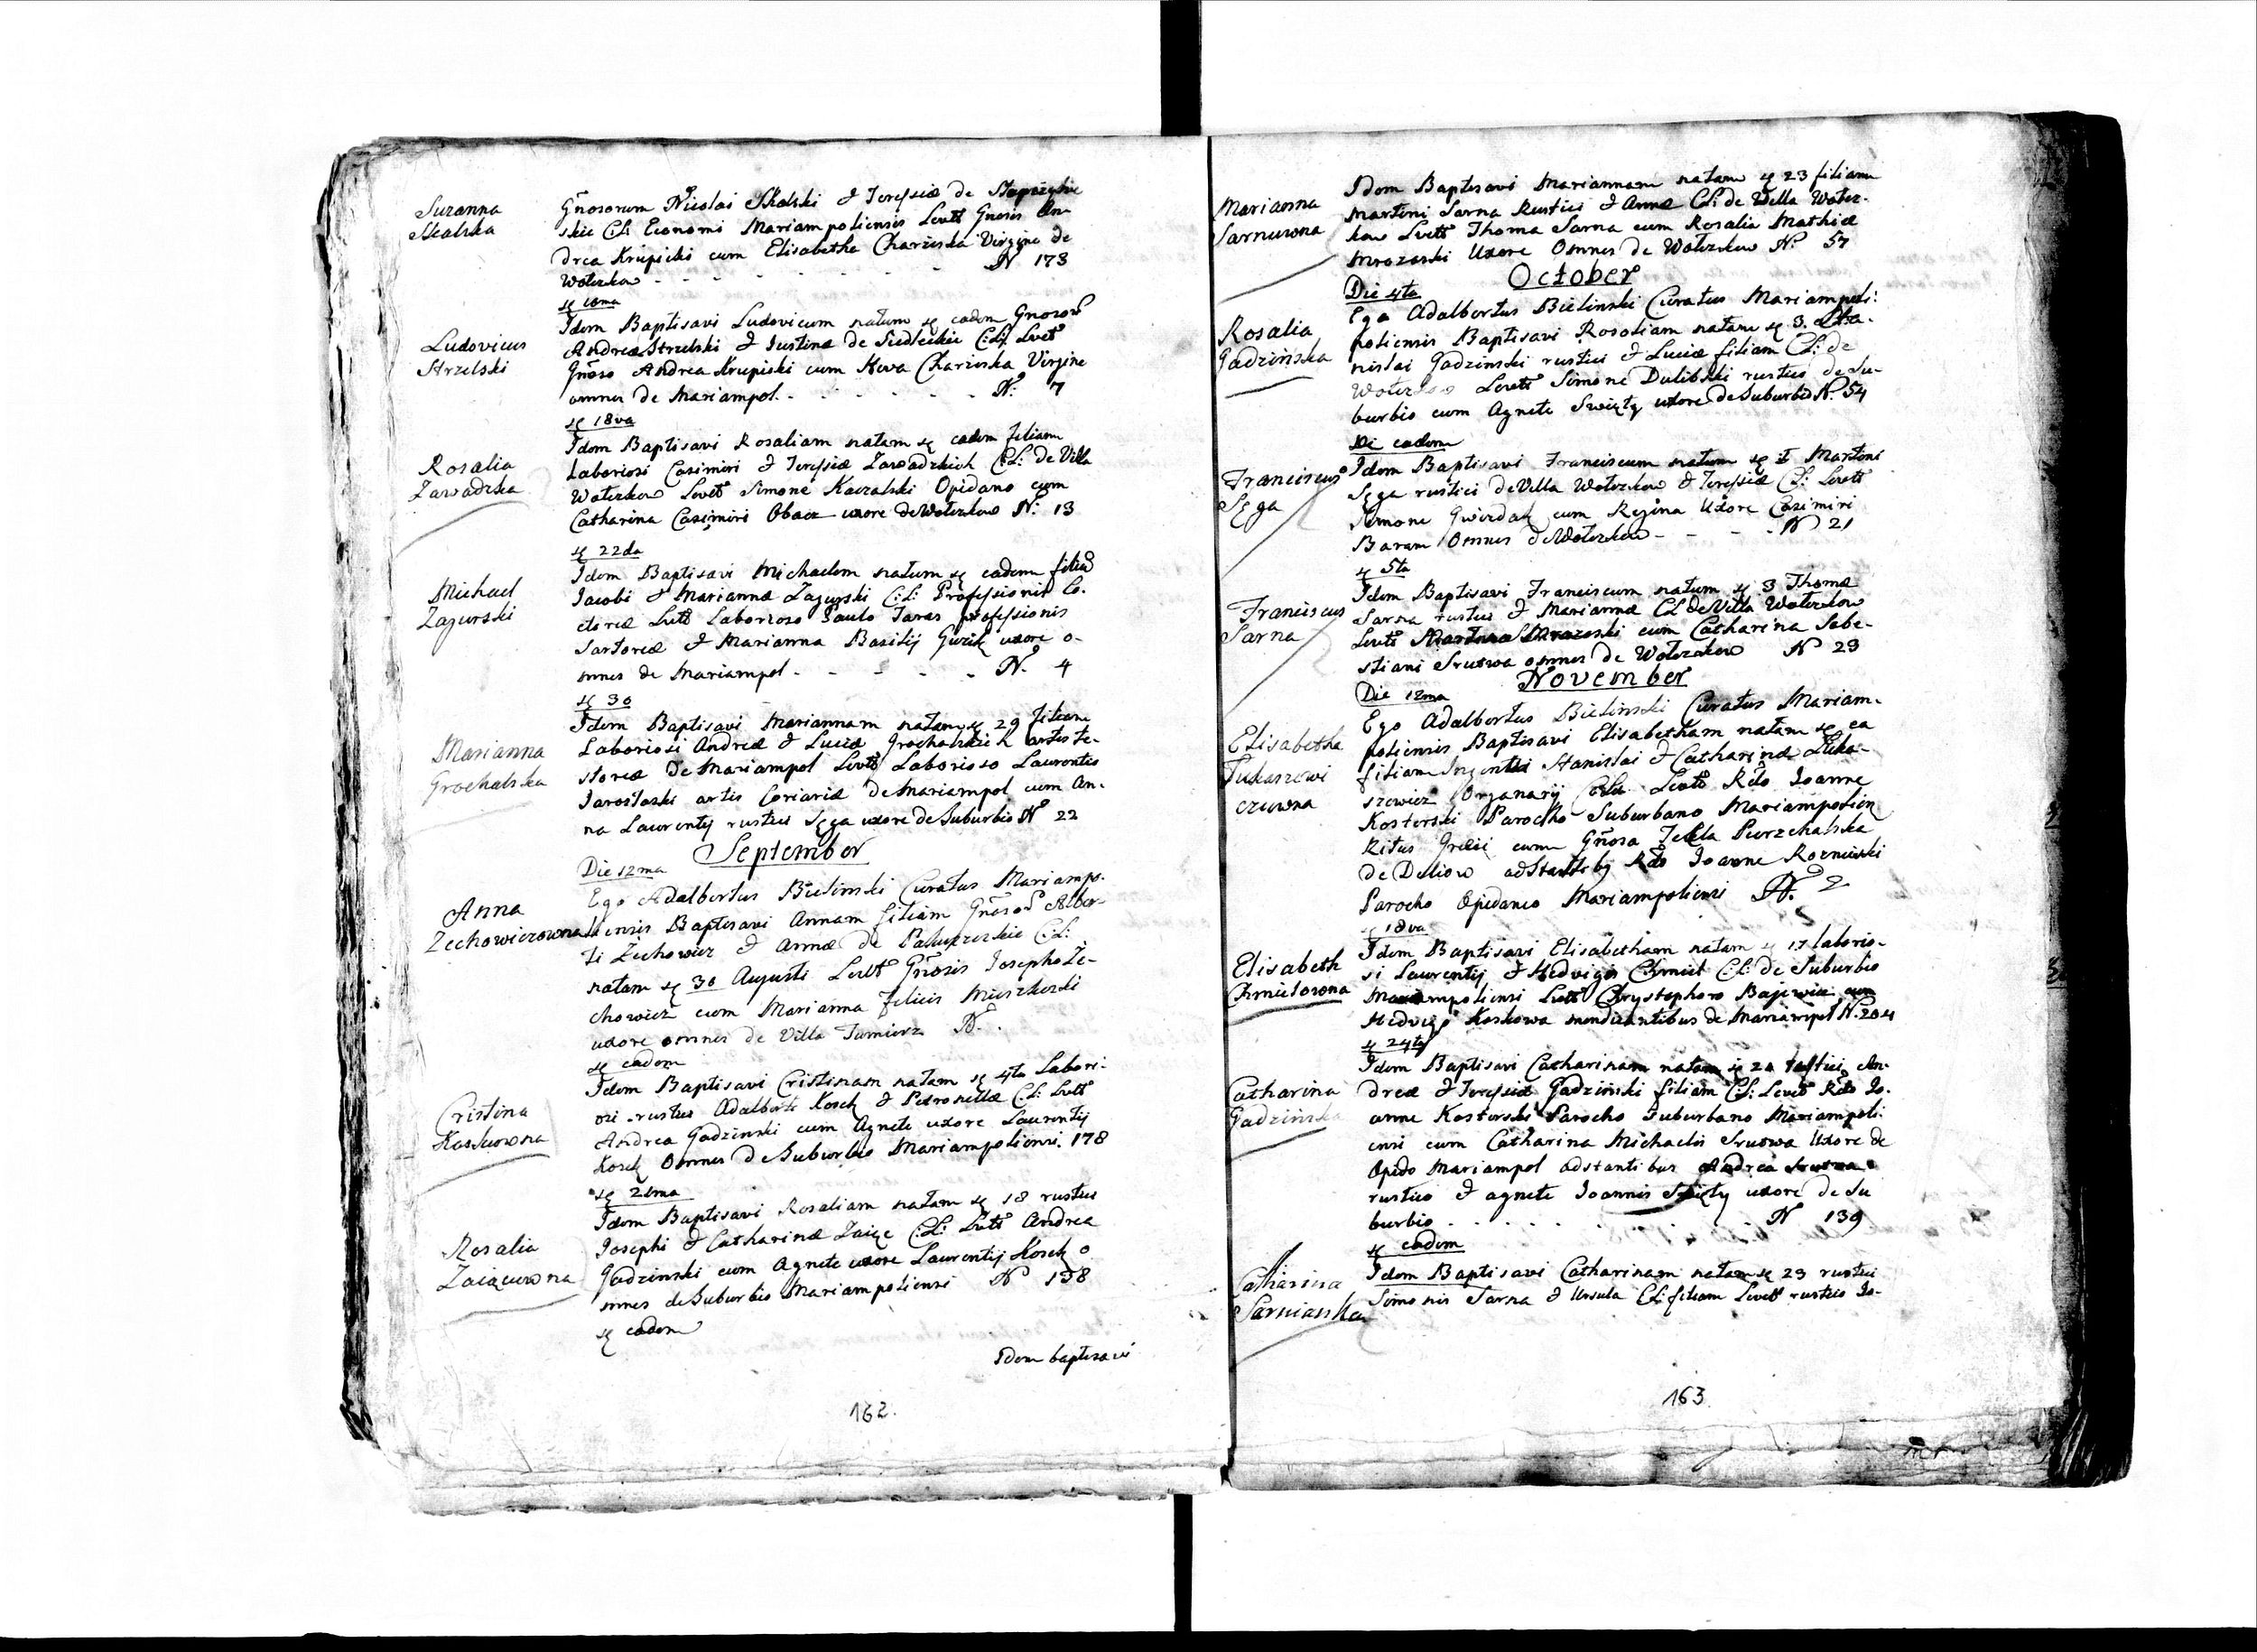 Suzanna
Skalska
Gnosorum Nicolai Skalski & Teressiæ de
skie C:L: Economi Mariampoliensis Levtt Gnosis An
drea Krupicki cum Elisabetha Charzeska Virgine de
Wołczkow - - - - - - - N 173
ꝗ 16ma
Ludovicus
Strzelski
Idem Baptisavi Ludovicum natum ꝗ eadem Gnosor
Andreæ Strzelski & Justinæ de Siedleckie C:L: Levtt
Gnoso Andrea Krupicki cum Heva Charzeska Virgine
omnes de Mariampol - - - - - - N: 7
ꝗ 18va
Rosalia
Zawadzka
Idem Baptisavi Rosaliam natam ꝗ eadem filiam
Laboriosi Casimiri & Teressiæ Zawadzkich C:L: de Villa
Wołczkow Levtt Simone Kaczalski Opidano cum
Catharina Casimiri Obacz uxore de Wołczkow N: 13
ꝗ 22da
Michael
Zagurski
Idem Baptisavi Michaelem natum ꝗ eadem filiu
Jacobi & Mariannæ Zagurski C:L: Professionis Co-
Levtt Laborioso Paulo Taras professionis
Sartoriæ & Marianna Basilij Guzik uxore o-
mnes de Mariampol - - - - - N. 4
ꝗ 30
Marianna
Grochalska
Idem Baptisavi Mariannam natam ꝗ 29 filiam
Laboriosi Andreæ & Luciæ Grochalskich artis te-
storiæ de Mariampol Levtt Laborioso Laurentio
artis Coriariæ de Mariampol cum An-
na Laurentij rustici Sęga uxore de Suburbio N 22
September
Die 12ma
Anna
Zechowiczowna
Ego Adalbertus Bielinski Curatus Mariampo-
liensis Baptisavi Annam filiam Gnosor Alber-
ti Zechowicz & Annæ de C:L:
natam ꝗ 30 Augusti Levtt Gnosis Josepho Ze-
chowicz cum Marianna Felicis Mieszkoski
uxore omnes de Villa Tumierz N.
ꝗ eadem
Cristina
Koskowna
Idem Baptisavi Cristinam natam ꝗ 4ta Labori-
osi rustici Adalberti Kosek & Petronellæ C:L: Levtt
Andrea Gadzinski cum Agnete uxore Laurentij
Kosek Omnes de Suburbio Mariampoliensi. 178
ꝗ 21ma
Rosalia
Zaiącowna
Idem Baptisavi Rosaliam natam ꝗ 18 rustici
Josephi & Catharinæ Zaiąc C:L: Levtt Andrea
Gadzinski cum Agnete uxore Laurentij Kosek o
mnes de Suburbio Mariampoliensi N 138
ꝗ eadem
Idem baptisavi
162.
Marianna
Sarnuwna
Idem Baptisavi Mariannam natam ꝗ 23 filiam
Martini Sarna Rustici & Annæ C:L: de Villa Wołcz-
kow Levtt Thoma Sarna cum Rosalia Mathiæ
Mrozoski Uxore Omnes de Wołczkow N: 57
October
Die 4ta
Rosalia
Gadzińska
Ego Adalbertus Bielinski Curatus Mariampoli:
poliensis Baptisavi Rosoliam natam ꝗ 3. Sta-
nislai Gadzinski rustici & Luciæ filiam C:L: de
Wołczkow Levtt Simone Dulibski rustico de Su-
burbio cum Agnete Swięty uxore de Suburbio N. 54
Di eadem
Franciscus
Sęga
Idem Baptisavi Franciscum natum ꝗ 1 Martini
Sęga rustici de Villa Wołczkow & Teressiæ C:L: Levtt
Simone Gwizdak cum Regina Uxore Casimiri
Baran Omnes de Wołczkow - - - - N 21
ꝗ 5ta
Franciscus
Sarna
Idem Baptisavi Franciscum natum ꝗ 3 Thomæ
Sarna rustici & Mariannæ C:L: de Villa Wołczkow
Levtt Martino Mrozoski cum Catharina Seba-
stiani Srutwa omnes de Wołczkow N 29
November
Die 12ma
Elisabetha
Łukaszewi
czuwna
Ego Adalbertus Bielinski Curatus Mariam-
poliensis Baptisavi Elisabetham natam ꝗ ea
filiam Stanislai & Catharinæ Łuka-
szewicz Organarij C:L: Levtt Rdo Joanne
Kosterski Parocho Suburbano Mariampolien
Ritus Græci cum Gnosa Tekla Purzchalska
de Deliow adstantiby Rdo Joanne Rozniński
Parocho Opidaneo Mariampoliensi N. 2
ꝗ 18va
Elisabeth
Chmielowna
Idem Baptisavi Elisabetham natam ꝗ 17 laborio-
si Laurentij & Hedvigis Chmiel C:L: de Suburbio
Mariampoliensi Levtt Chrystophoro Bajewicz cum
Hedvige Koskowa mendicantibus de Mariampol N. 204
ꝗ 24ta
Catharina
Gadzińska
Idem Baptisavi Catharinam natam ꝗ 21 rustici An-
dreæ & Teressiæ Gadzinski filiam C:L: Levtt Rdo Jo-
anne Kosterski Parocho Suburbano Mariampoli-
ensi cum Catharina Michaelis Srutwa Uxore de
Opido Mariampol adstantibus Andrea Srutwa
rustico & agnete Joannis Swięty uxore de Su
burbio - - - - - - - - N 139
ꝗ eadem
Catharina
Sarnianka
Idem Baptisavi Catharinam natam ꝗ 23 rustici
Simonis Sarna & Ursula C:L: filiam Levtt rustico Jo-
163